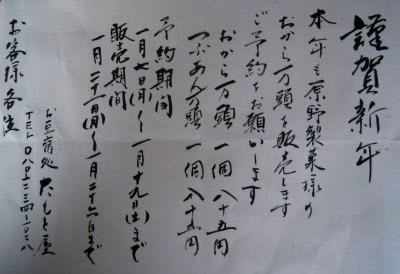 謹賀新年
本年も原野製菓様の
おから万頭を販売します
ご予約をお願いします
おから万頭 一個 八十五円
つぶあん万頭 一個 八十五円
予約期間
一月七日(月)〜一月十九日(土)まで
販売期間
一月二十一日(月)〜一月二十六日まで
お客様各位
お豆腐処 たもと屋